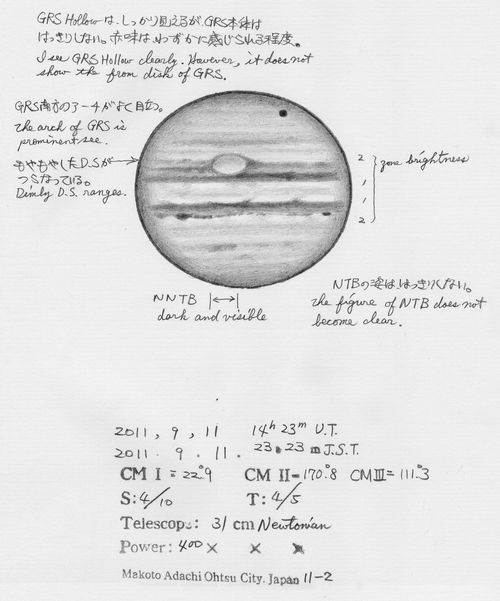 GRS Hollowは、しっかり見えるが、GRS本体は
はっきりしない。赤味は、わずかに感じられる程度。
I see GRS Hollow clearly. However, it does not
show the from disk of GRS.
GRS南方のアーチがよく目立つ。
the arch of GRS is
prominent see.
もやもやしたD.Sが
つらなっている。
Dimly D.S. ranges.
2
1
1
2
zone brightness
NNTB
dark and visible
NTBの姿は、はっきりしない。
the figure of NTB does not
become clear.
2011, 9, 11 14h 23m U.T.
2011. 9. 11. 23h 23m J.S.T.
CM I = 22°.9 CM II= 170°.8 CM III= 111°.3
S: 4/10 T: 4/5
Telescope: 31 cm Newtonian
Power: 400 × × ×
Makoto Adachi Ohtsu City. Japan 11-2